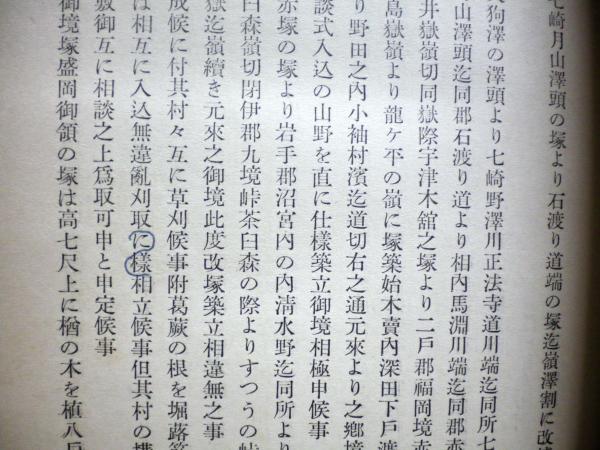 七崎月山澤頭の塚より石渡り道端の塚迄嶺澤割に改
狗澤の澤頭より七崎野澤川正法寺道川端迄同所七
山澤頭迄同郡石渡り道より相内馬淵川端迄同郡赤
井嶽嶺切同嶽際宇津木舘之塚より二戸郡福岡境赤
島嶽嶺より龍ケ平の嶺に塚築始木賣內深田下戶渡
り野田之內小袖村濱迄道切右之通元來より之鄕境
談式入込の山野を直に仕樣築立御境相極申候事
赤塚の塚より岩手郡沼宮內の內淸水野迄同所より
臼森嶺切閉伊郡九境峠茶臼森の際よりすつうの峠
嶽迄嶺續き元來之御境此度改塚築立相違無之事
成候に付其村々互に草刈候事附葛蕨の根を堀蕗
は相互に入込無違亂刈取に樣相立候事但其村の構
敷御互に相談之上爲取可申と申定候事
御境塚盛岡御領の塚は高七尺上に楢の木を植八戶